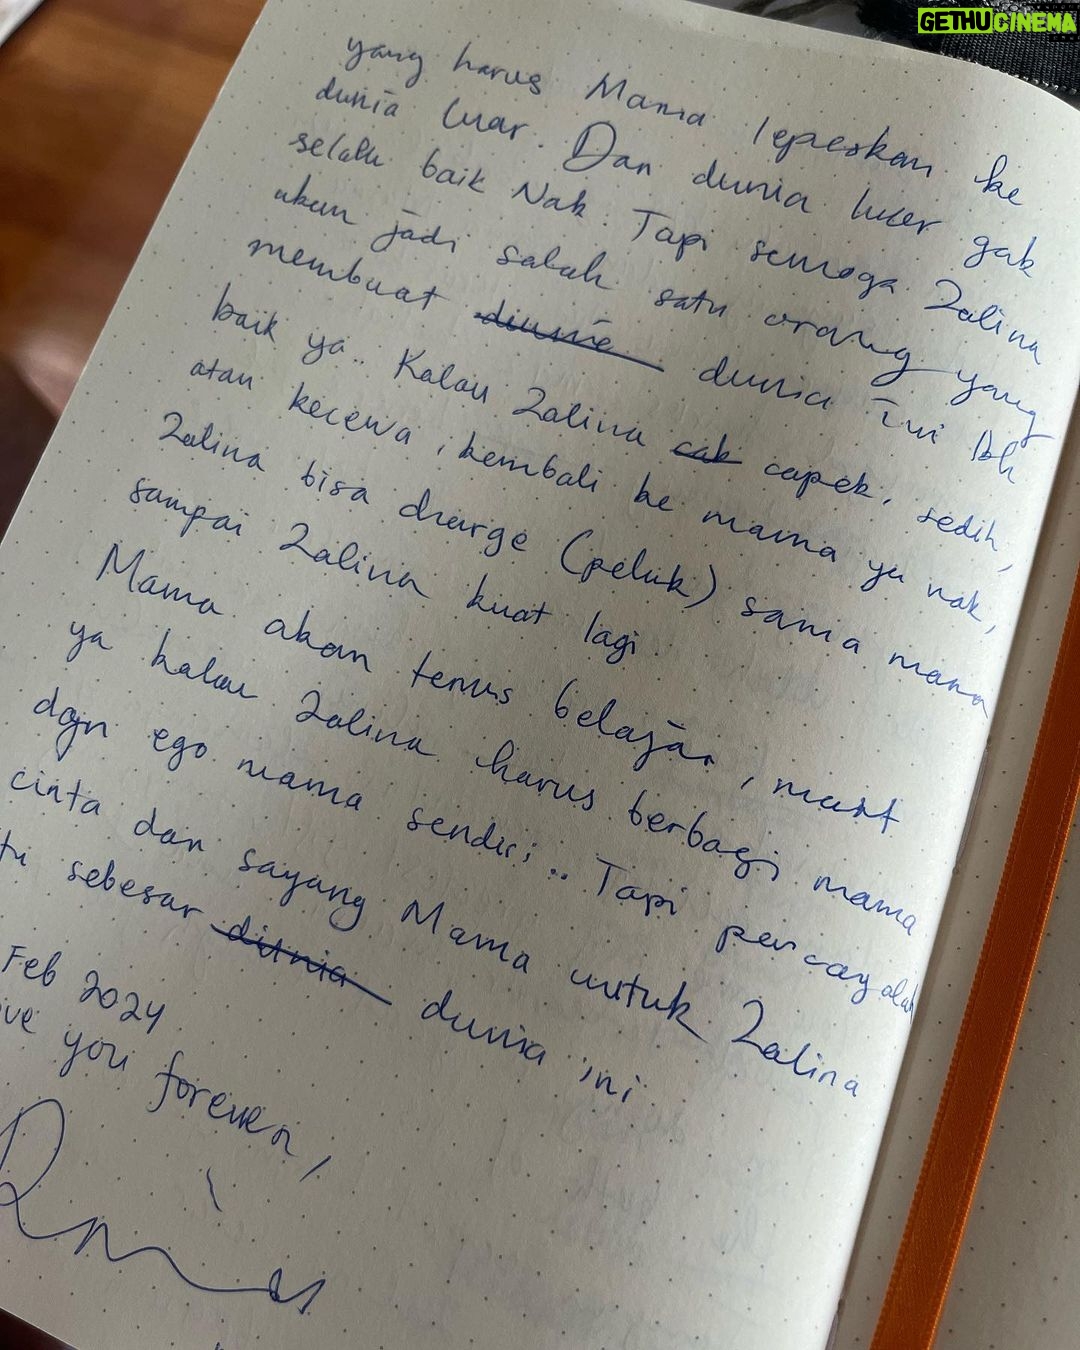 GETHUCINEMA
yang harus Mama lepaskan ke
dunia luar. Dan dunia luar gak
selalu baik Nak. Tapi semoga Zalina
akan jadi salah satu orang yang
membuat dunia dunia ini lbh
baik ya.. Kalau Zalina cak capek, sedih,
atau kecewa, kembali ke mama ya nak,
Zalina bisa charge (peluk) sama mama
sampai Zalina kuat lagi.
Mama akan terus belajar, maaf
ya kalau Zalina harus berbagi mama
dgn ego mama sendiri.. Tapi percayalah
cinta dan sayang Mama untuk Zalina
tu sebesar dunia dunia ini
Feb 2024
ve you forever,